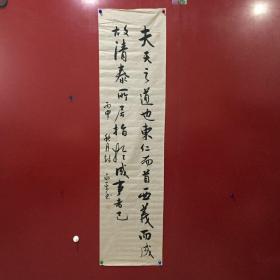 夫天之道也東仁而首西義而成
故清泰所居指於成事者已
丙申 秋月